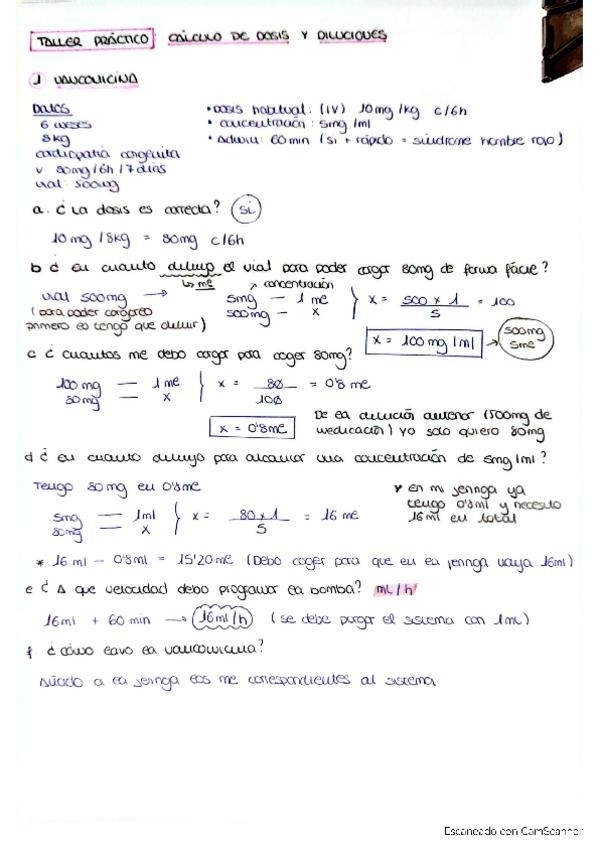 TALLER PRÁCTICO: CÁLCULO DE DOSIS Y DILUCIONES
1 VANCOMICINA
DATOS
6 meses
8kg
cardiopatía congénita
v 80mg/6h/7días
vial 500mg
• Dosis habitual: (IV) 10mg/kg c/6h
• concentración: 5mg/ml
• Admin: 60min (si + rápido = síndrome hombre rojo)
a. ¿La dosis es correcta? (sí)
10mg/8kg = 80mg c/6h
b ¿ En cuanto diluyo el vial para poder cargar 80mg de forma fácil?
↳ ml
↗ concentración
vial 500mg →
(para poder cargarlo
primero lo tengo que diluir)
5mg — 1 ml
500mg — x
x = 500 x 1 / 5 = 100
x = 100 mg/ml → 500mg 5ml
c ¿ cuantos ml debo cargar para coger 80mg?
100 mg — 1 ml
80mg — x
x = 80 / 100 = 0'8 ml
x = 0'8ml
De la dilución anterior (500mg de
medicación) yo solo quiero 80mg
d ¿ En cuanto diluyo para alcanzar una concentración de 5mg/ml?
Tengo 80mg en 0'8ml
5mg — 1ml
80mg — x
x = 80 x 1 / 5 = 16 ml
* en mi jeringa ya
tengo 0'8ml y necesito
16ml en total
* 16 ml – 0'8ml = 15'20ml (Debo coger para que en la jeringa vaya 16ml)
e ¿ A que velocidad debo programar la bomba? mL/h
16ml + 60 min → 16ml/h (se debe purgar el sistema con 1mL)
f ¿cómo lavo la vancomicina?
Añado a la jeringa los ml correspondientes al sistema
Escaneado con CamScanner